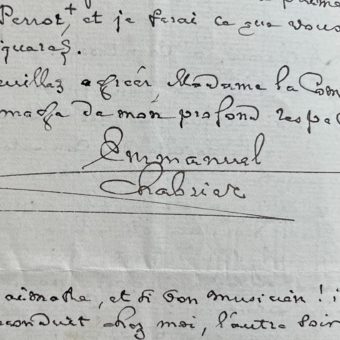 Perrot + et je ferai ce que vous
Veuillez agréer, Madame la Com
de mon profond respe
Emmanuel
Chabrier
aimable, et si bon musicien ! i
reconduit chez moi, l'autre soir